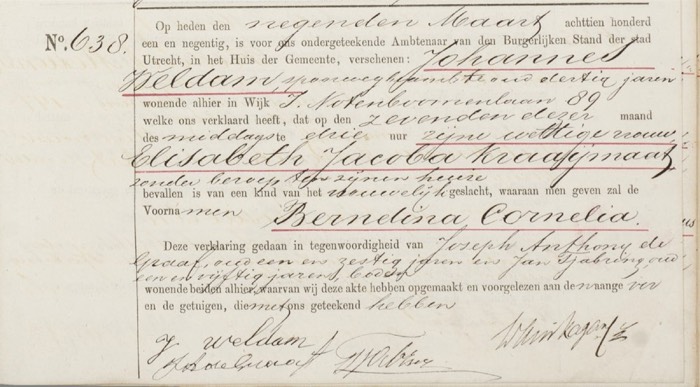 Nº. 638. Op heden den negenden Maart achttien honderd
een en negentig, is voor ons ondergeteekende Ambtenaar van den Burgerlijken Stand der stad
Utrecht, in het Huis der Gemeente, verschenen: Johannes
Weldam, spoorwegbeambte oud dertig jaren
wonende alhier in Wijk I. Notenboomenlaan 89
welke ons verklaard heeft, dat op den zevenden dezer maand
des middags te drie uur zijne wettige vrouw
Elisabeth Jacoba Kraaijmaat
zonder beroep ten zijnen huize
bevallen is van een kind van het vrouwelijk geslacht, waaraan men geven zal de
Voornamen Berndina Cornelia.
Deze verklaring gedaan in tegenwoordigheid van Joseph Anthony de
Graaf, oud een en zestig jaren en Jan Tjabring, oud
een en vijftig jaren, boden
wonende beiden alhier, waarvan wij deze akte hebben opgemaakt en voorgelezen aan den aange ver
en de getuigen, die met ons geteekend hebben
J Weldam
J A de Graaf